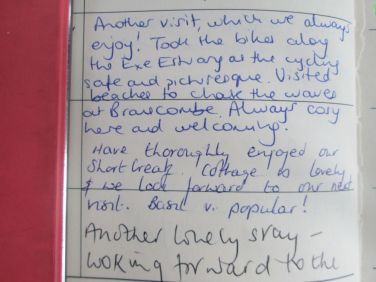 Another visit, which we always
enjoy! Took the bikes along
the Exe Estuary as the cycling
safe and picturesque. Visited
beaches to chase the waves
at Branscombe. Always cosy
here and welcoming.
Have thoroughly enjoyed our
short break. Cottage is lovely
& we look forward to our next
visit. Basil v. popular!
Another lovely stay -
looking forward to the